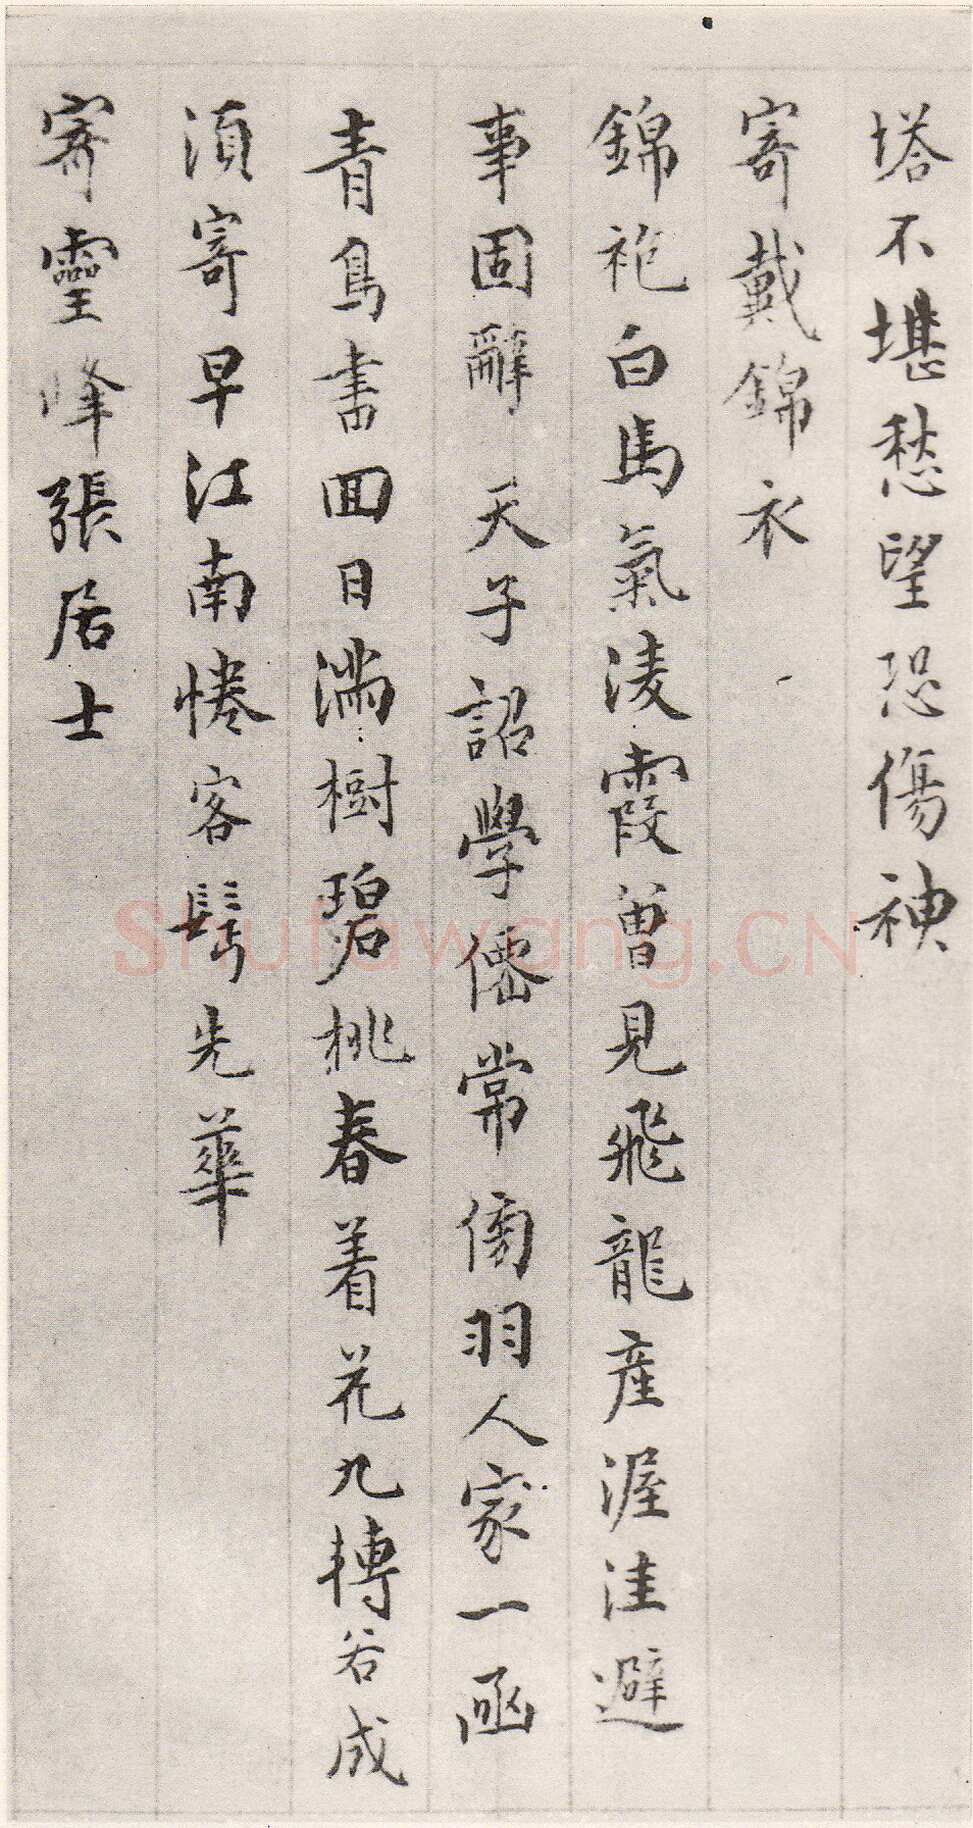 塔不堪愁望恐傷神
寄戴錦衣
錦袍白馬氣淩霞曽見飛龍産渥洼避
事固辭天子詔學僊常傍羽人家一函
青鳥書回日滿樹碧桃春着花九轉若成
須寄早江南倦客鬂先華
寄靈峰張居士
shufawang.CN